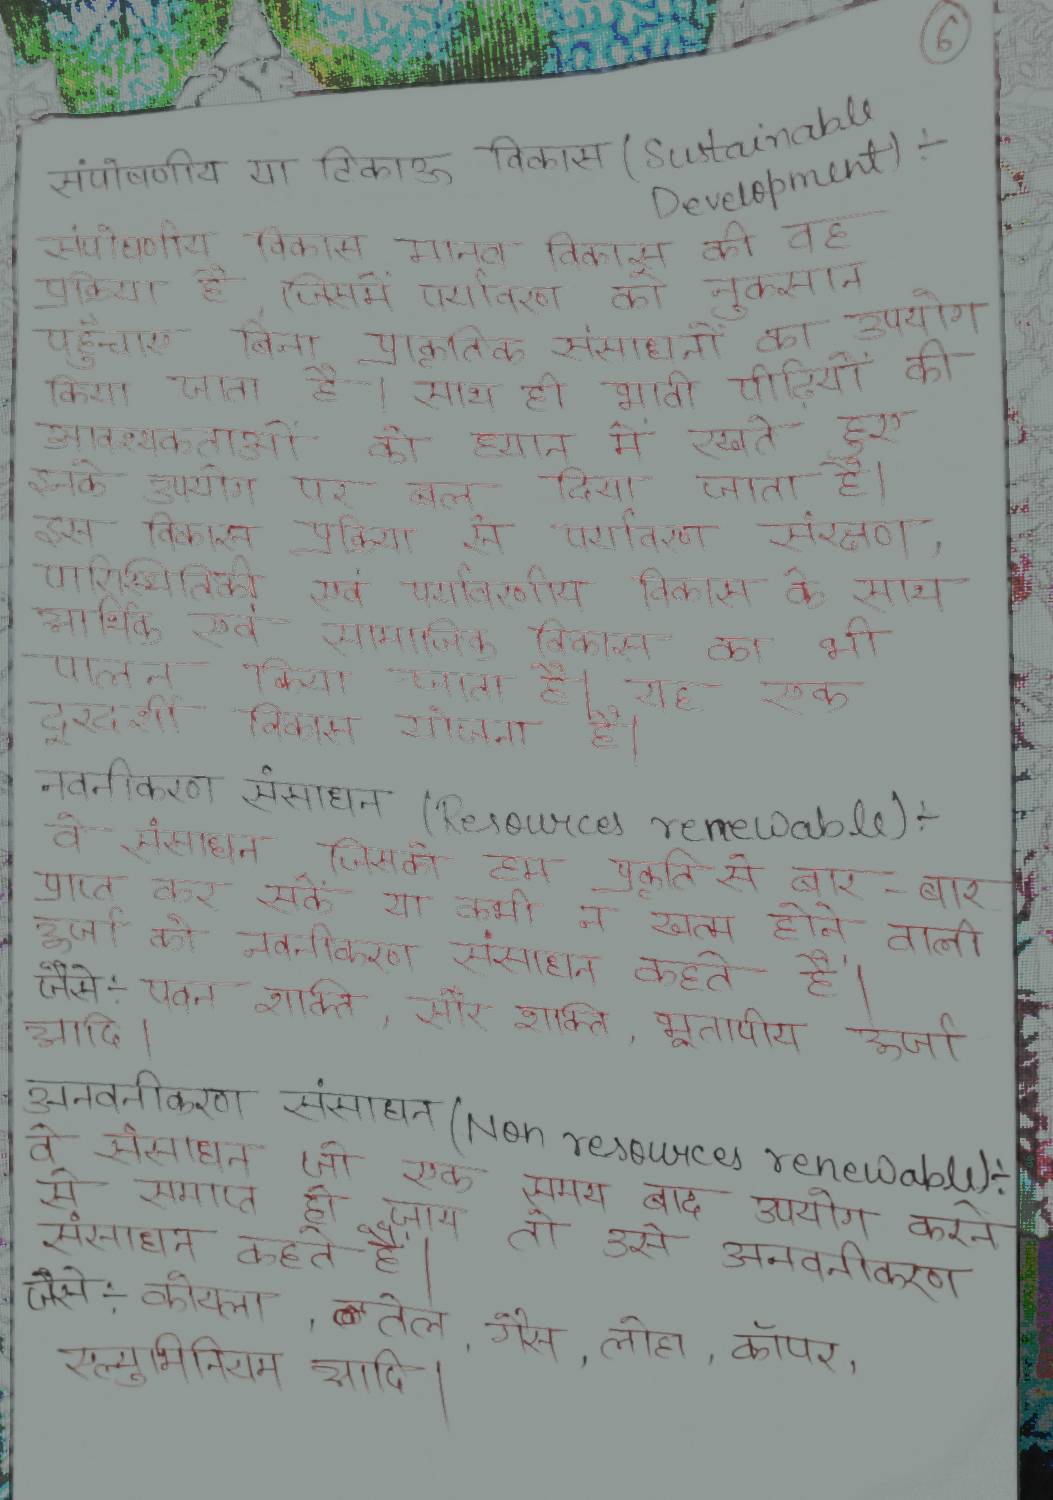 6
संपोषणीय या टिकाऊ विकास (Sustainable
Development) ÷
संपोषणीय विकास मानव विकास की वह
प्रक्रिया है, जिसमें पर्यावरण को नुकसान
पहुँचाए बिना प्राकृतिक संसाधनों का उपयोग
किया जाता है। साथ ही भावी पीढ़ियों की
आवश्यकताओं को ध्यान में रखते हुए
इनके उपयोग पर बल दिया जाता है।
इस विकास प्रक्रिया से पर्यावरण संरक्षण,
पारिस्थितिकी एवं पर्यावरणीय विकास के साथ
आर्थिक एवं सामाजिक विकास का भी
पालन किया जाता है। यह एक
दूरदर्शी विकास योजना है।
नवनीकरण संसाधन (Resources renewable) ÷
वे संसाधन जिसको हम प्रकृति से बार - बार
प्राप्त कर सकें या कभी न खत्म होने वाली
ऊर्जा को नवनीकरण संसाधन कहते हैं।
जैसे ÷ पवन शक्ति, सौर शक्ति, भूतापीय ऊर्जा
आदि।
अनवनीकरण संसाधन (Non resources renewable) ÷
वे संसाधन जो एक समय बाद उपयोग करने
से समाप्त हो जाय तो उसे अनवनीकरण
संसाधन कहते हैं।
जैसे ÷ कोयला, तेल, गैस, लोहा, कॉपर,
एल्युमिनियम आदि।